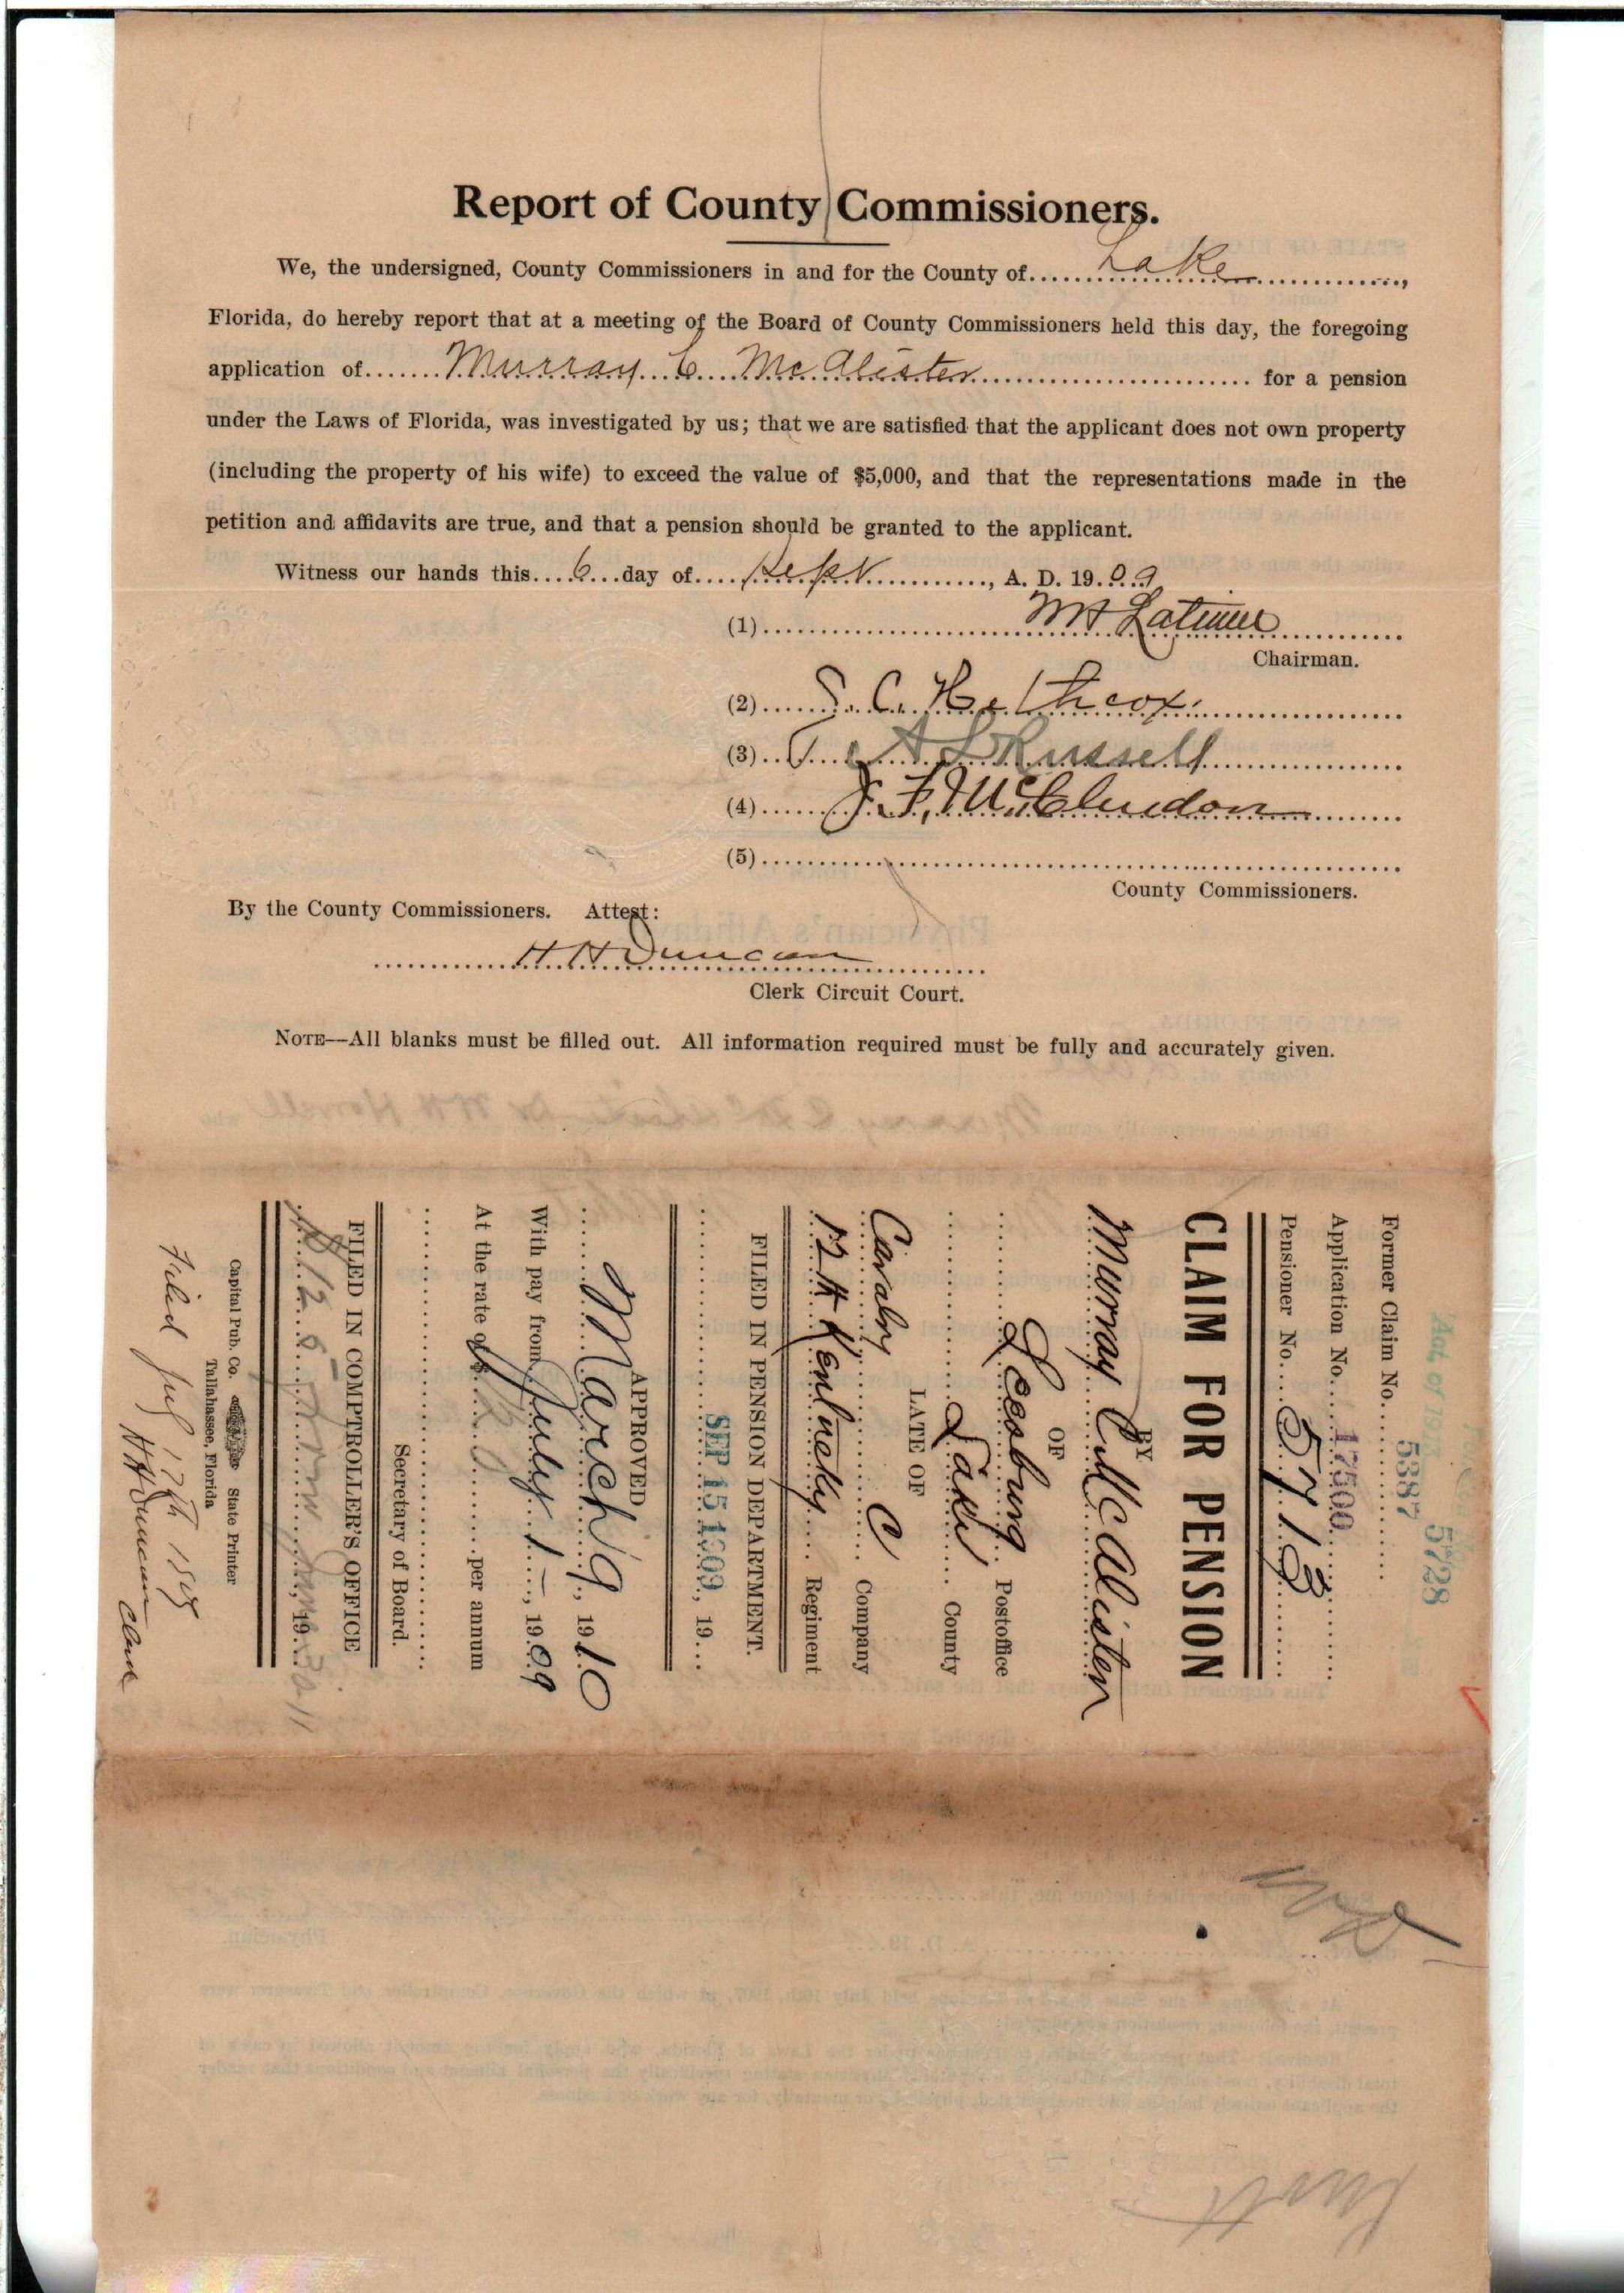 Report of County Commissioners.
We, the undersigned, County Commissioners in and for the County of......Lake..............,
Florida, do hereby report that at a meeting of the Board of County Commissioners held this day, the foregoing
application of.......Murray C McAlister............................ for a pension
under the Laws of Florida, was investigated by us; that we are satisfied that the applicant does not own property
(including the property of his wife) to exceed the value of $5,000, and that the representations made in the
petition and affidavits are true, and that a pension should be granted to the applicant.
Witness our hands this....6...day of....Sept............, A. D. 19.09
(1)..............................Latimer............
Chairman.
(2)......S. C. Hethcox......................
(3)...A L Russell......................
(4)......J. F. McClendon..........
(5)..............................................................
County Commissioners.
By the County Commissioners. Attest:
............H H Duncan............
Clerk Circuit Court.
NOTE—All blanks must be filled out. All information required must be fully and accurately given.
5728
Former Claim No....5387..............
Application No....17500..............
Pensioner No....5713.........
CLAIM FOR PENSION
BY
Murray Cull McAlister
OF
..........Leesburg.. Postoffice
..........Lake...... County
LATE OF
Cavalry C...... Company
12th Kentucky.... Regiment
FILED IN PENSION DEPARTMENT.
..........SEP 15 1909, 19....
APPROVED
......March 9, 1910
With pay from July 1-, 1909
At the rate of $120........per annum
..............................
Secretary of Board.
FILED IN COMPTROLLER'S OFFICE
......................, 19....
Capital Pub. Co. State Printer
Tallahassee, Florida
Filed July 17th
H H Duncan Clerk